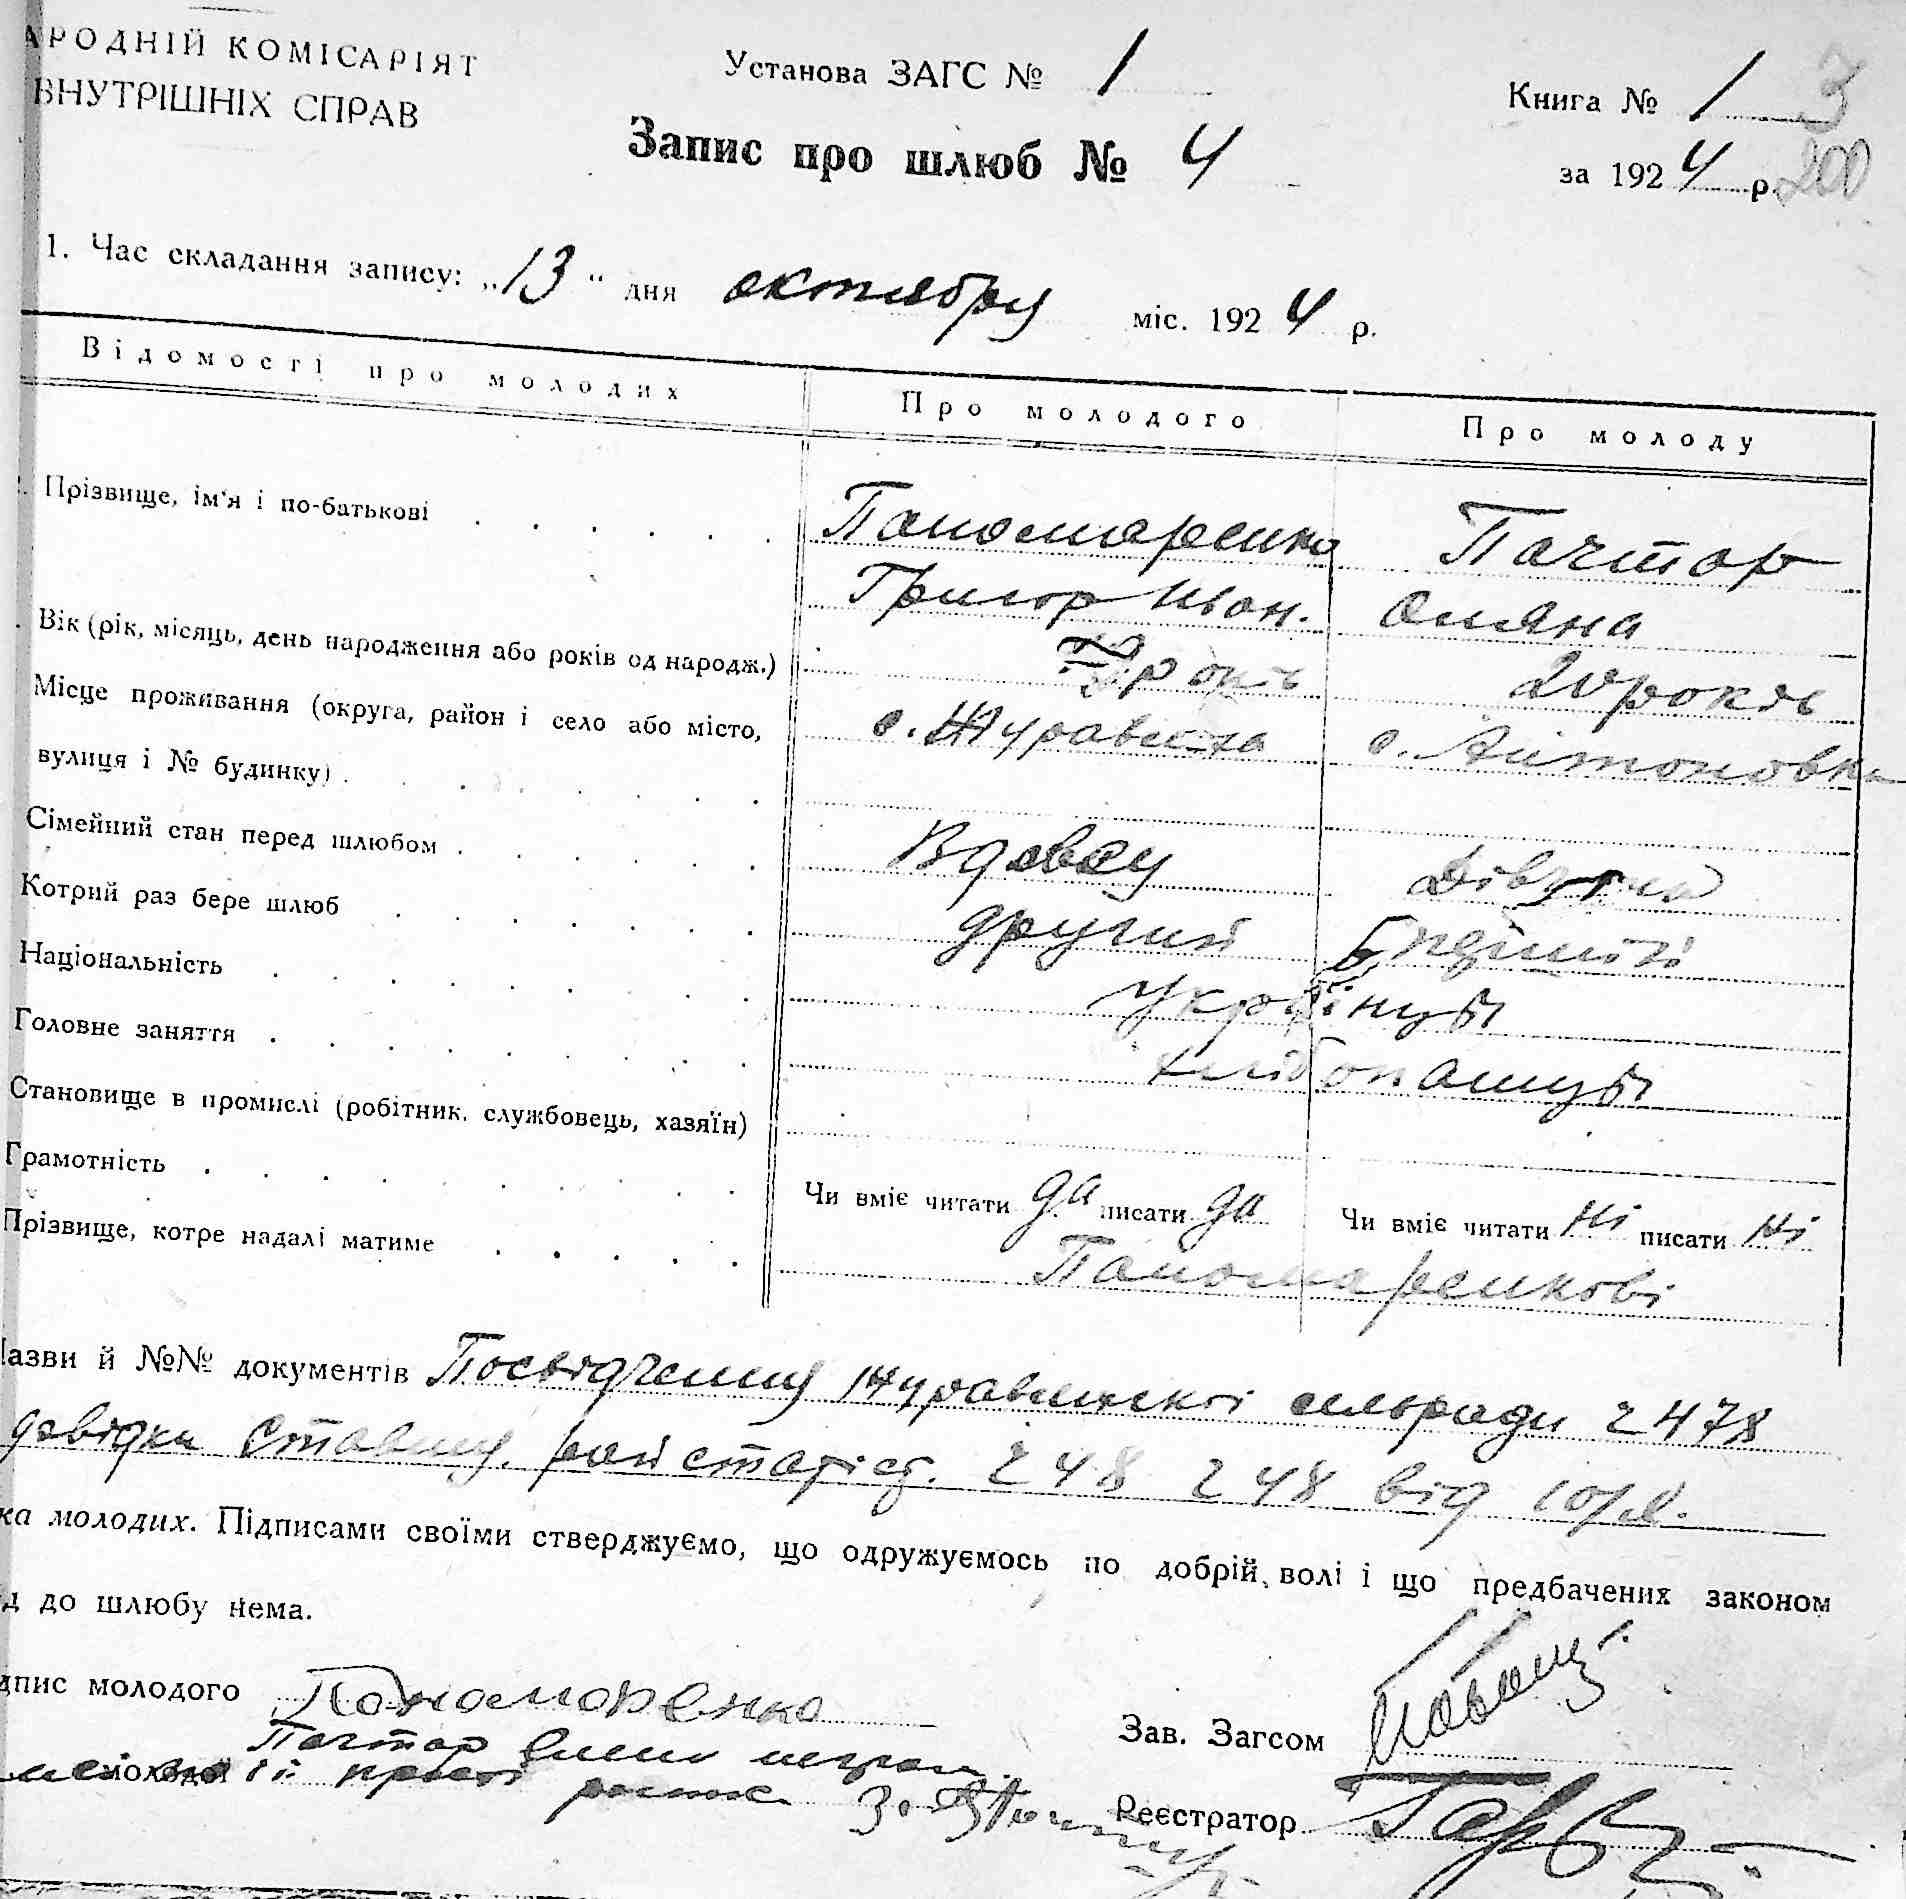 АРОДНІЙ КОМІСАРІЯТ
ВНУТРІШНІХ СПРАВ
Установа ЗАГС № 1
Книга № 1 3
Запис про шлюб № 4
за 1924 р. 200
1. Час складання запису: „13“ дня октября міс. 1924 р.
Відомості про молодих Про молодого Про молоду
Прізвище, ім'я і по-батькові Паномаренко Пачтар
Григор Иван. Оляна
Вік (рік, місяць, день народження або років од народж.) років 20 років
Місце проживання (округа, район і село або місто, с. Журавлиха с. Антоновка
вулиця і № будинку)
Сімейний стан перед шлюбом Вдовец Дівчина
Котрий раз бере шлюб другий
Національність Українці
Головне заняття хліборобці
Становище в промислі (робітник, службовець, хазяїн)
Грамотність Чи вміє читати да писати да Чи вміє читати ні писати ні
Прізвище, котре надалі матиме Паномаренкові
азви й №№ документів Посвідчення Журавлиської сільради 2478
довідки Ставищ. 248 248 від
ка молодих. Підписами своїми стверджуємо, що одружуємось по добрій волі і що предбачених законом
д до шлюбу нема.
дпис молодого Паномаренко
Зав. Загсом
Пачтар
молодої
Реєстратор